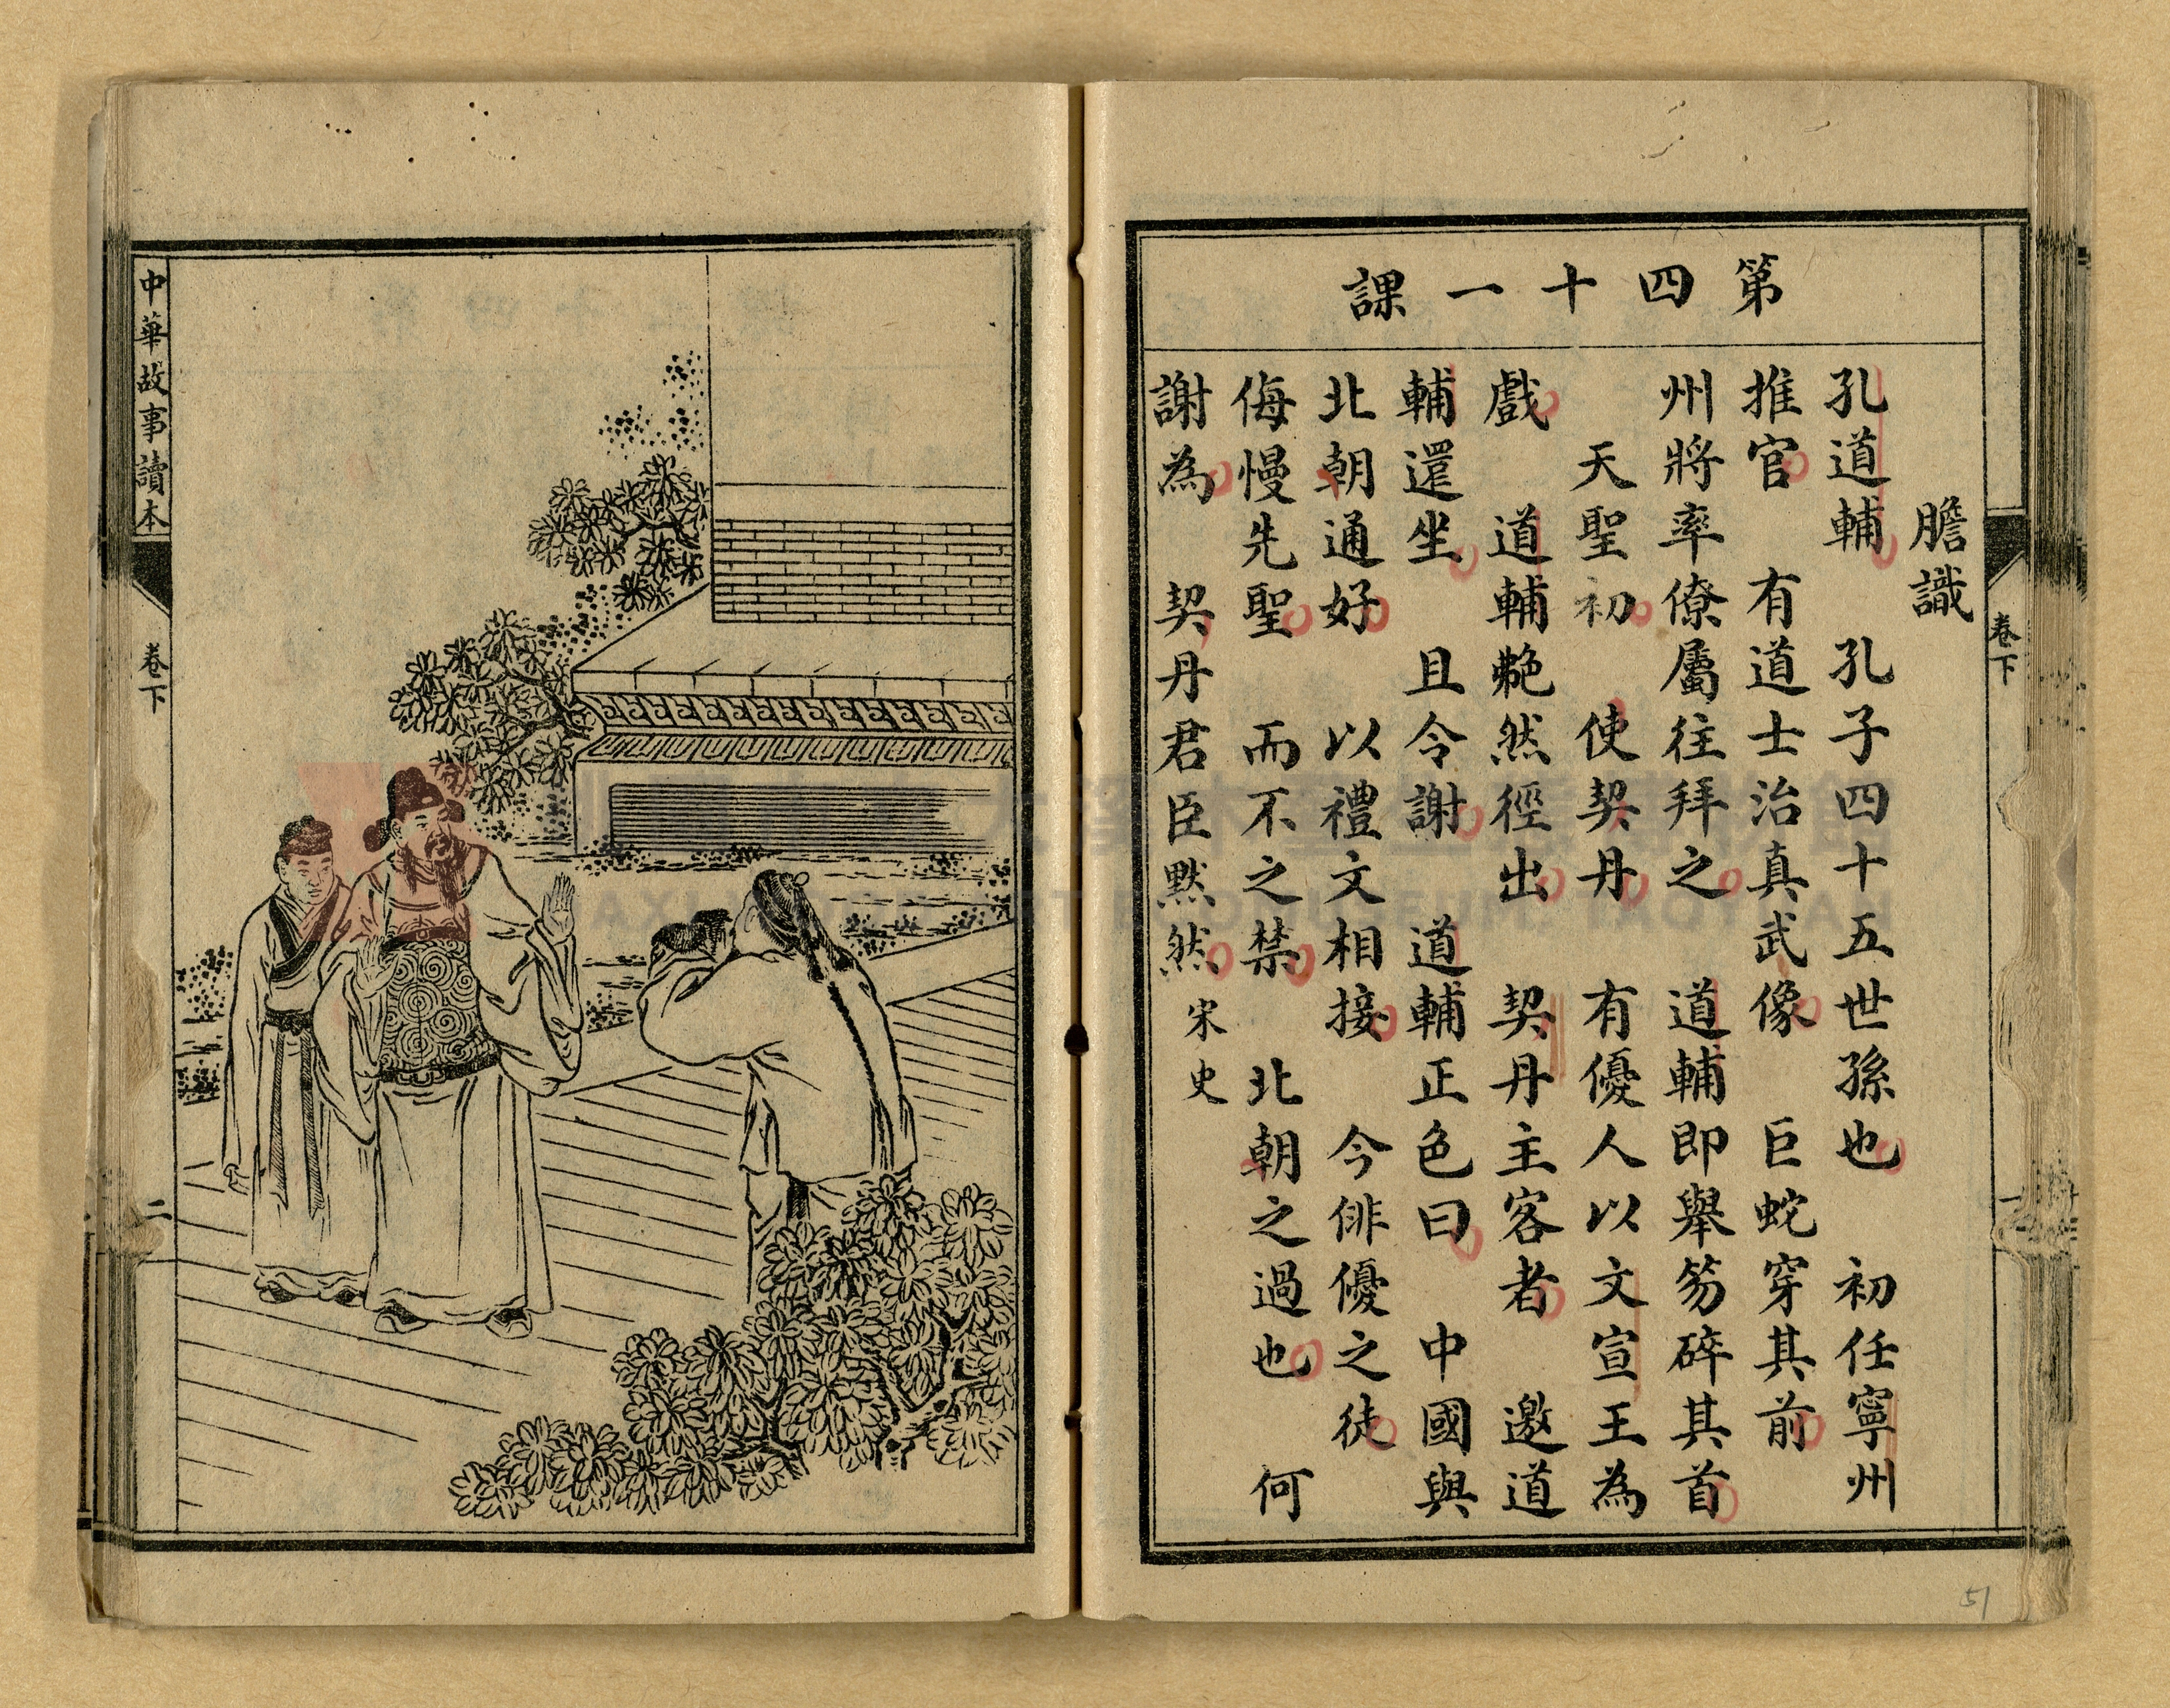 第四十一課
膽識
孔道輔 孔子四十五世孫也 初任寧州
推官 有道士治真武像 巨蛇穿其前
州將率僚屬往拜之 道輔即舉笏碎其首
天聖初 使契丹 有優人以文宣王為
戲 道輔艴然徑出 契丹主客者 邀道
輔還坐 且令謝 道輔正色曰 中國與
北朝通好 以禮文相接 今俳優之徒
侮慢先聖 而不之禁 北朝之過也 何
謝為 契丹君臣默然 宋史
卷下
一
51
中華故事讀本
卷下
二